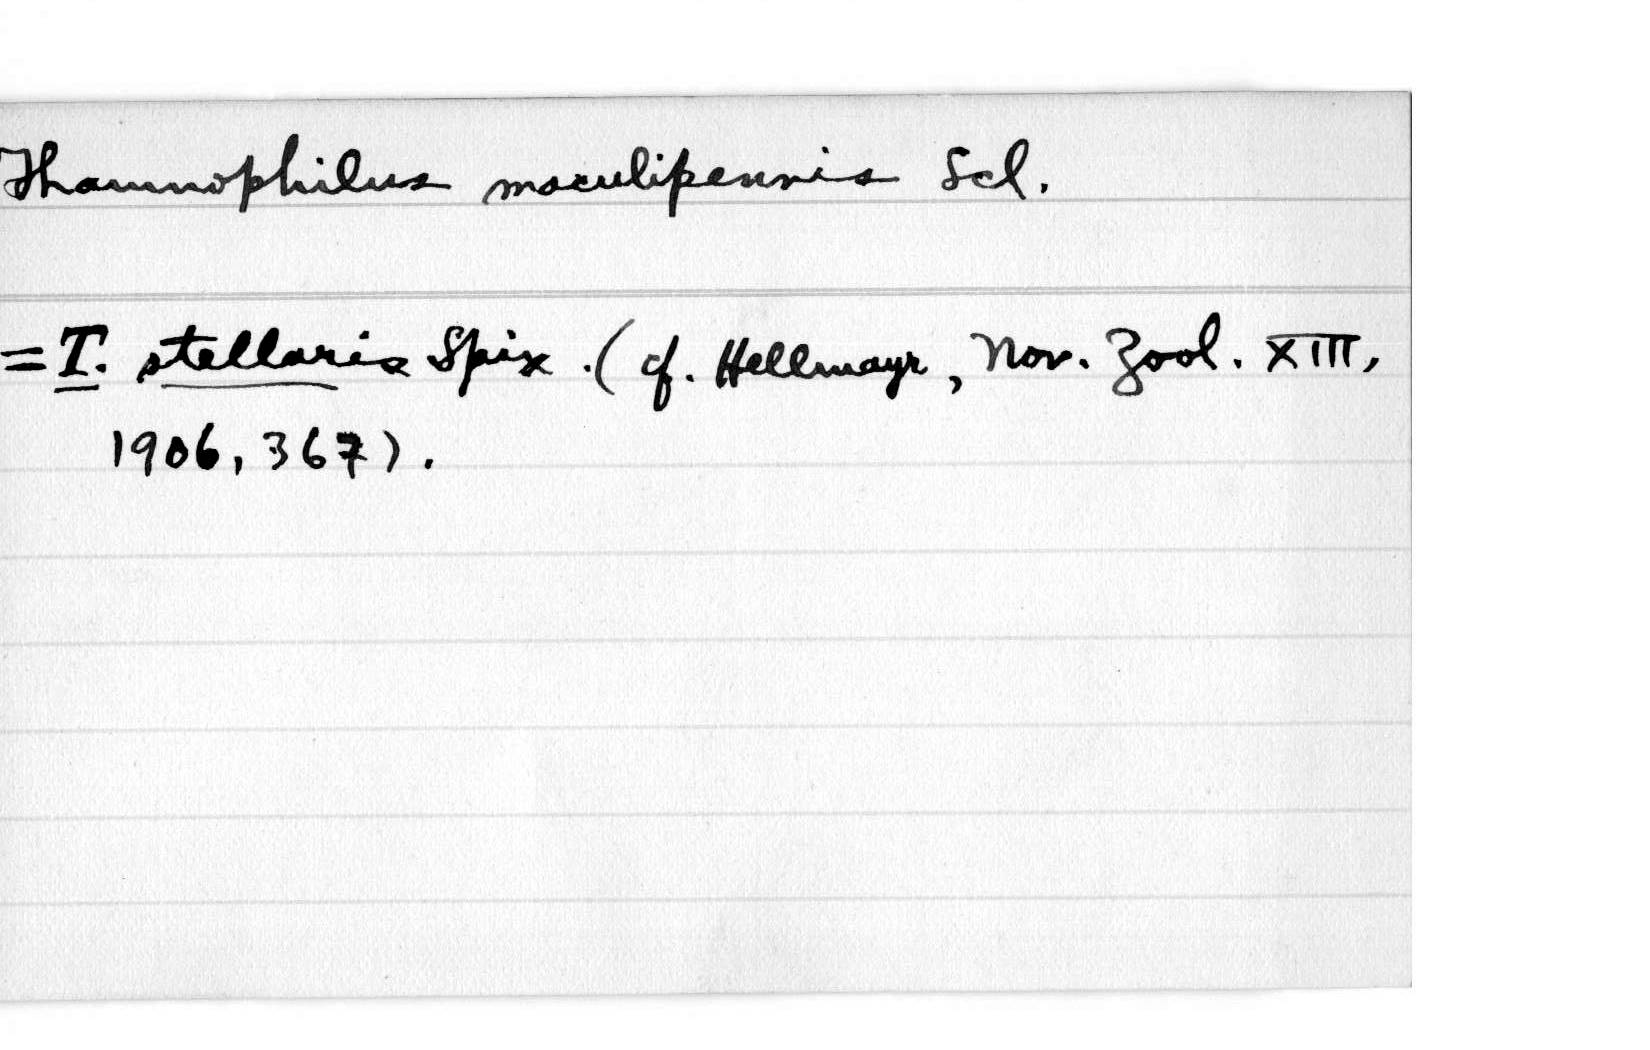 Thamnophilus maculipennis Scl.
= T. stellaris Spix. (cf. Hellmayr, Nov. Zool. XIII,
1906, 367).